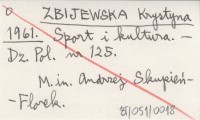 0 ZBIJEWSKA Krystyna
1961. Sport i kultura. —
Dz. Pol. nr 125.
M. in. Andrzej Skupień-
-Florek.
BJ/OS1/0018